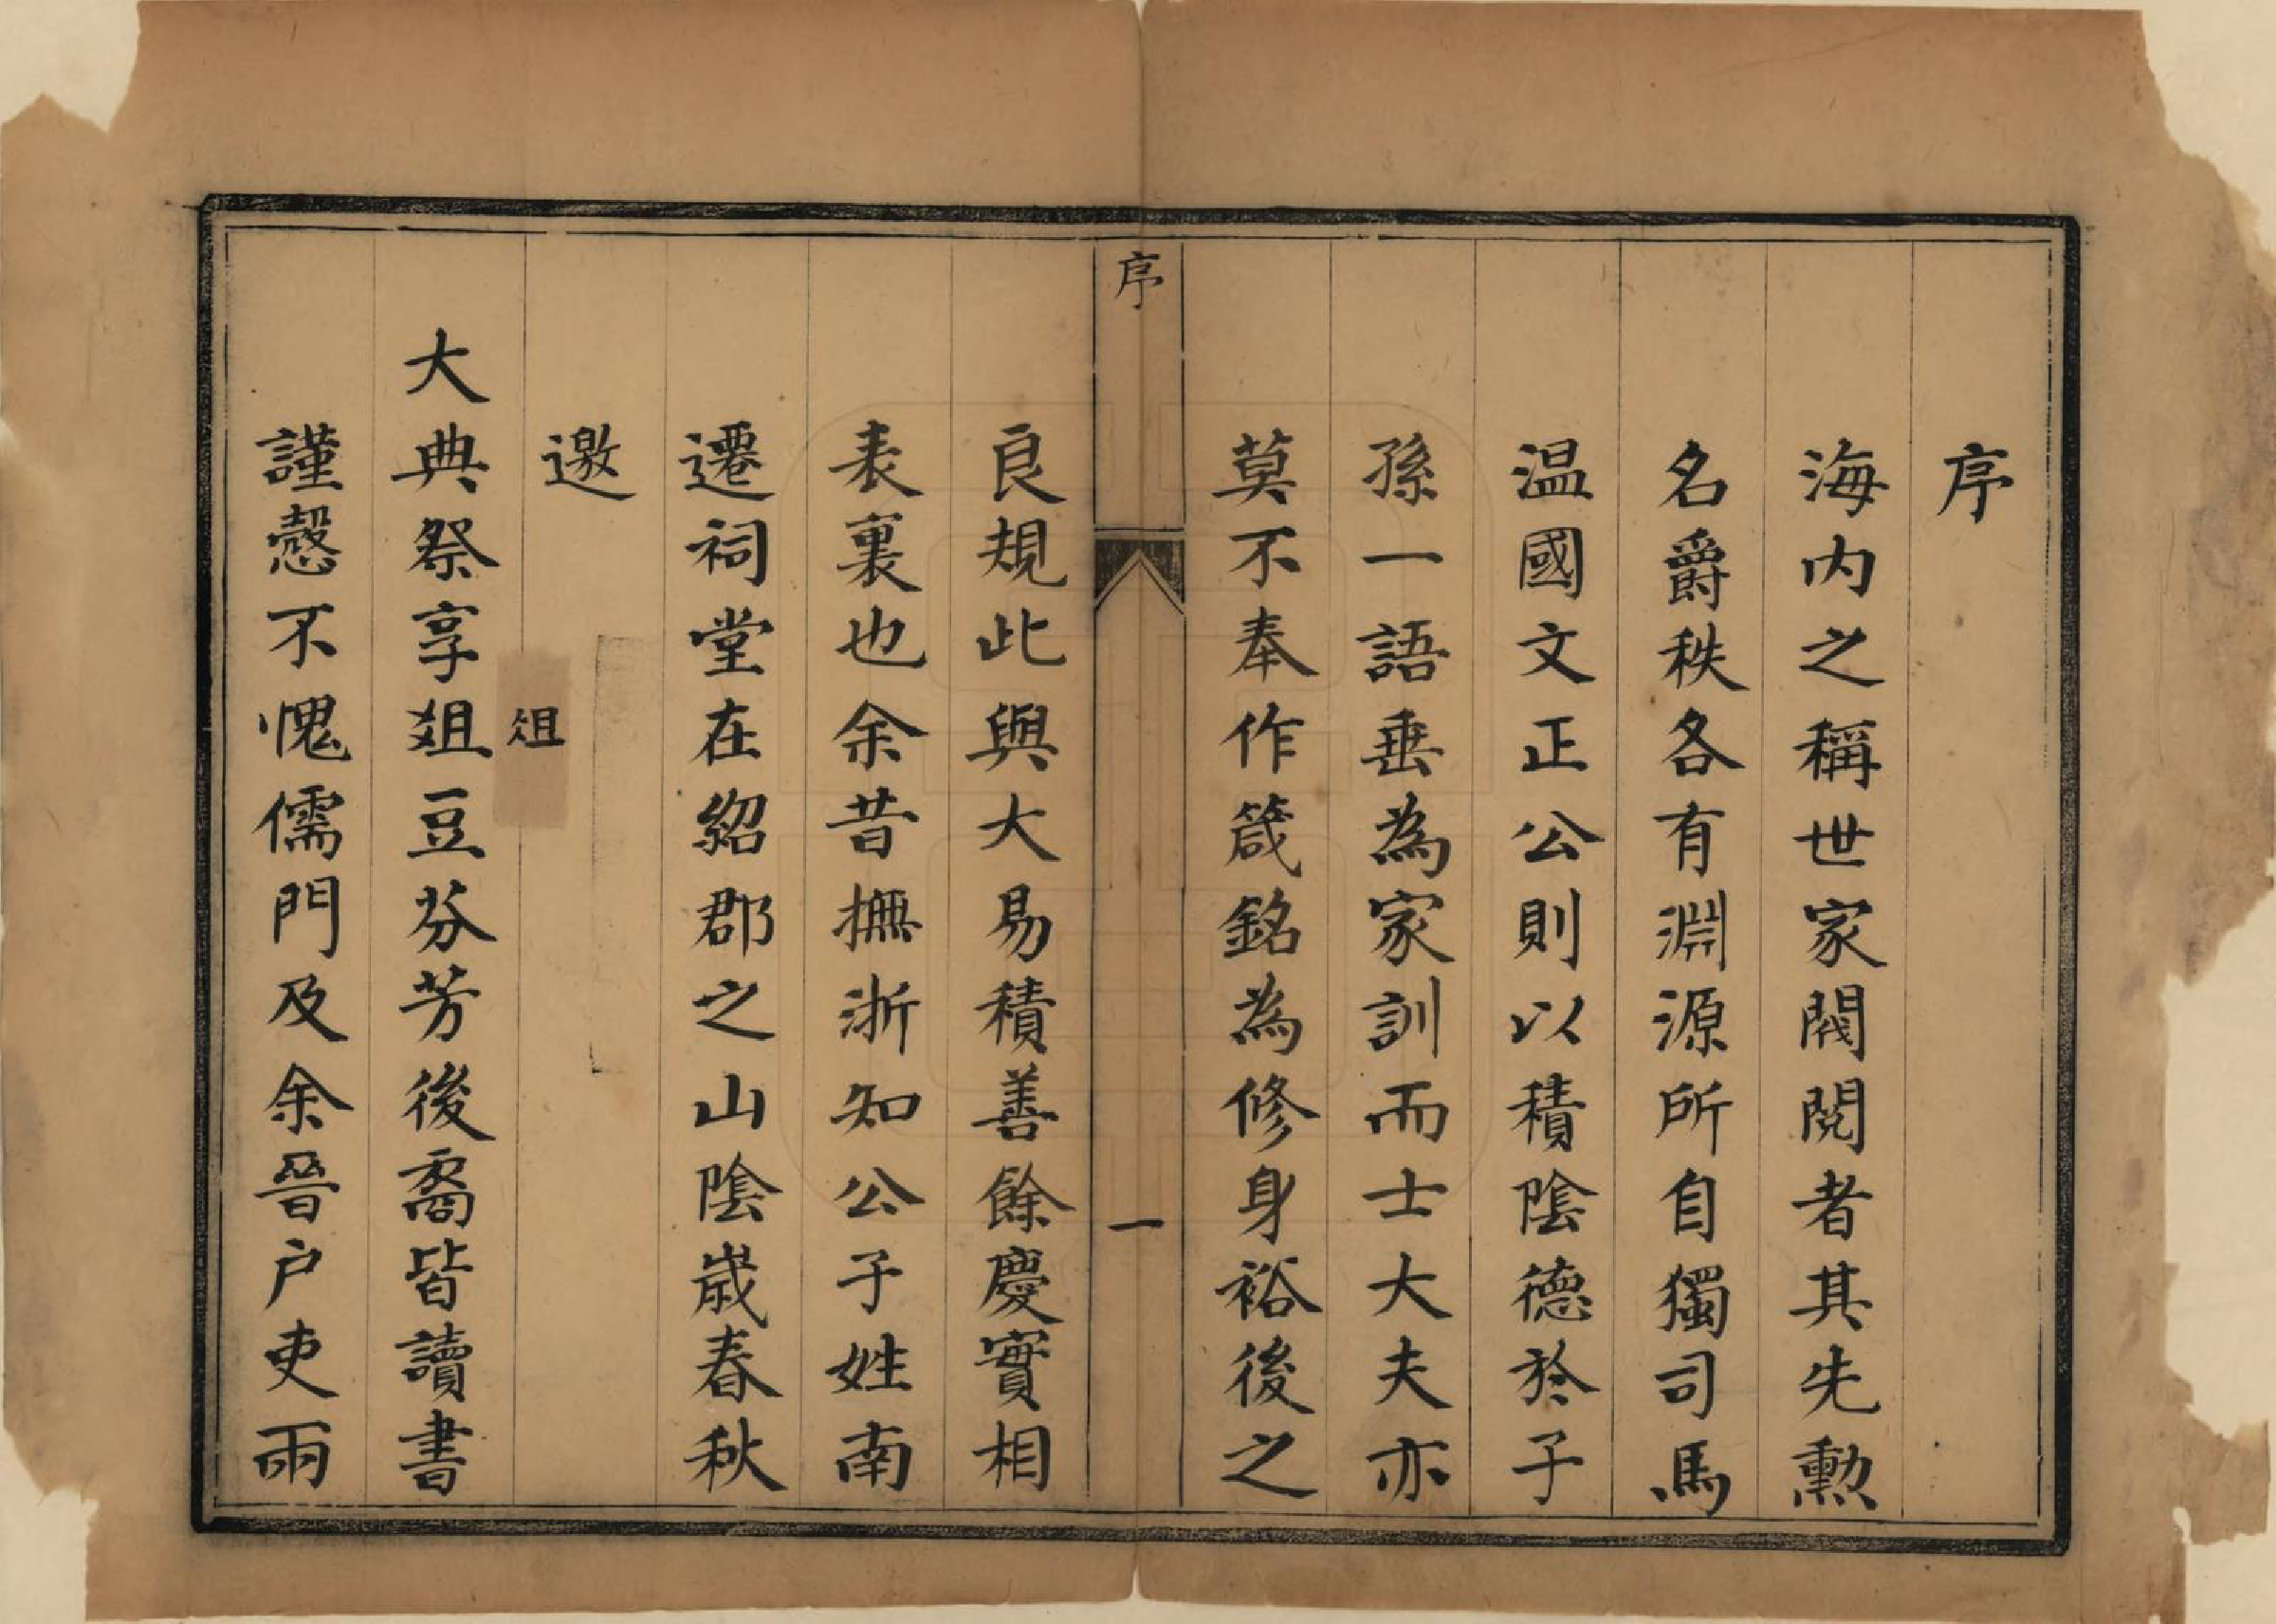 序
海内之稱世家閥閱者其先勲
名爵秩各有淵源所自獨司馬
温國文正公則以積陰德於子
孫一語垂為家訓而士大夫亦
莫不奉作箴銘為修身裕後之
序
一
良規此與大易積善餘慶實相
表裏也余昔撫浙知公子姓南
遷祠堂在紹郡之山陰歲春秋
邀
俎
大典祭享俎豆芬芳後裔皆讀書
謹慤不愧儒門及余晉户吏兩